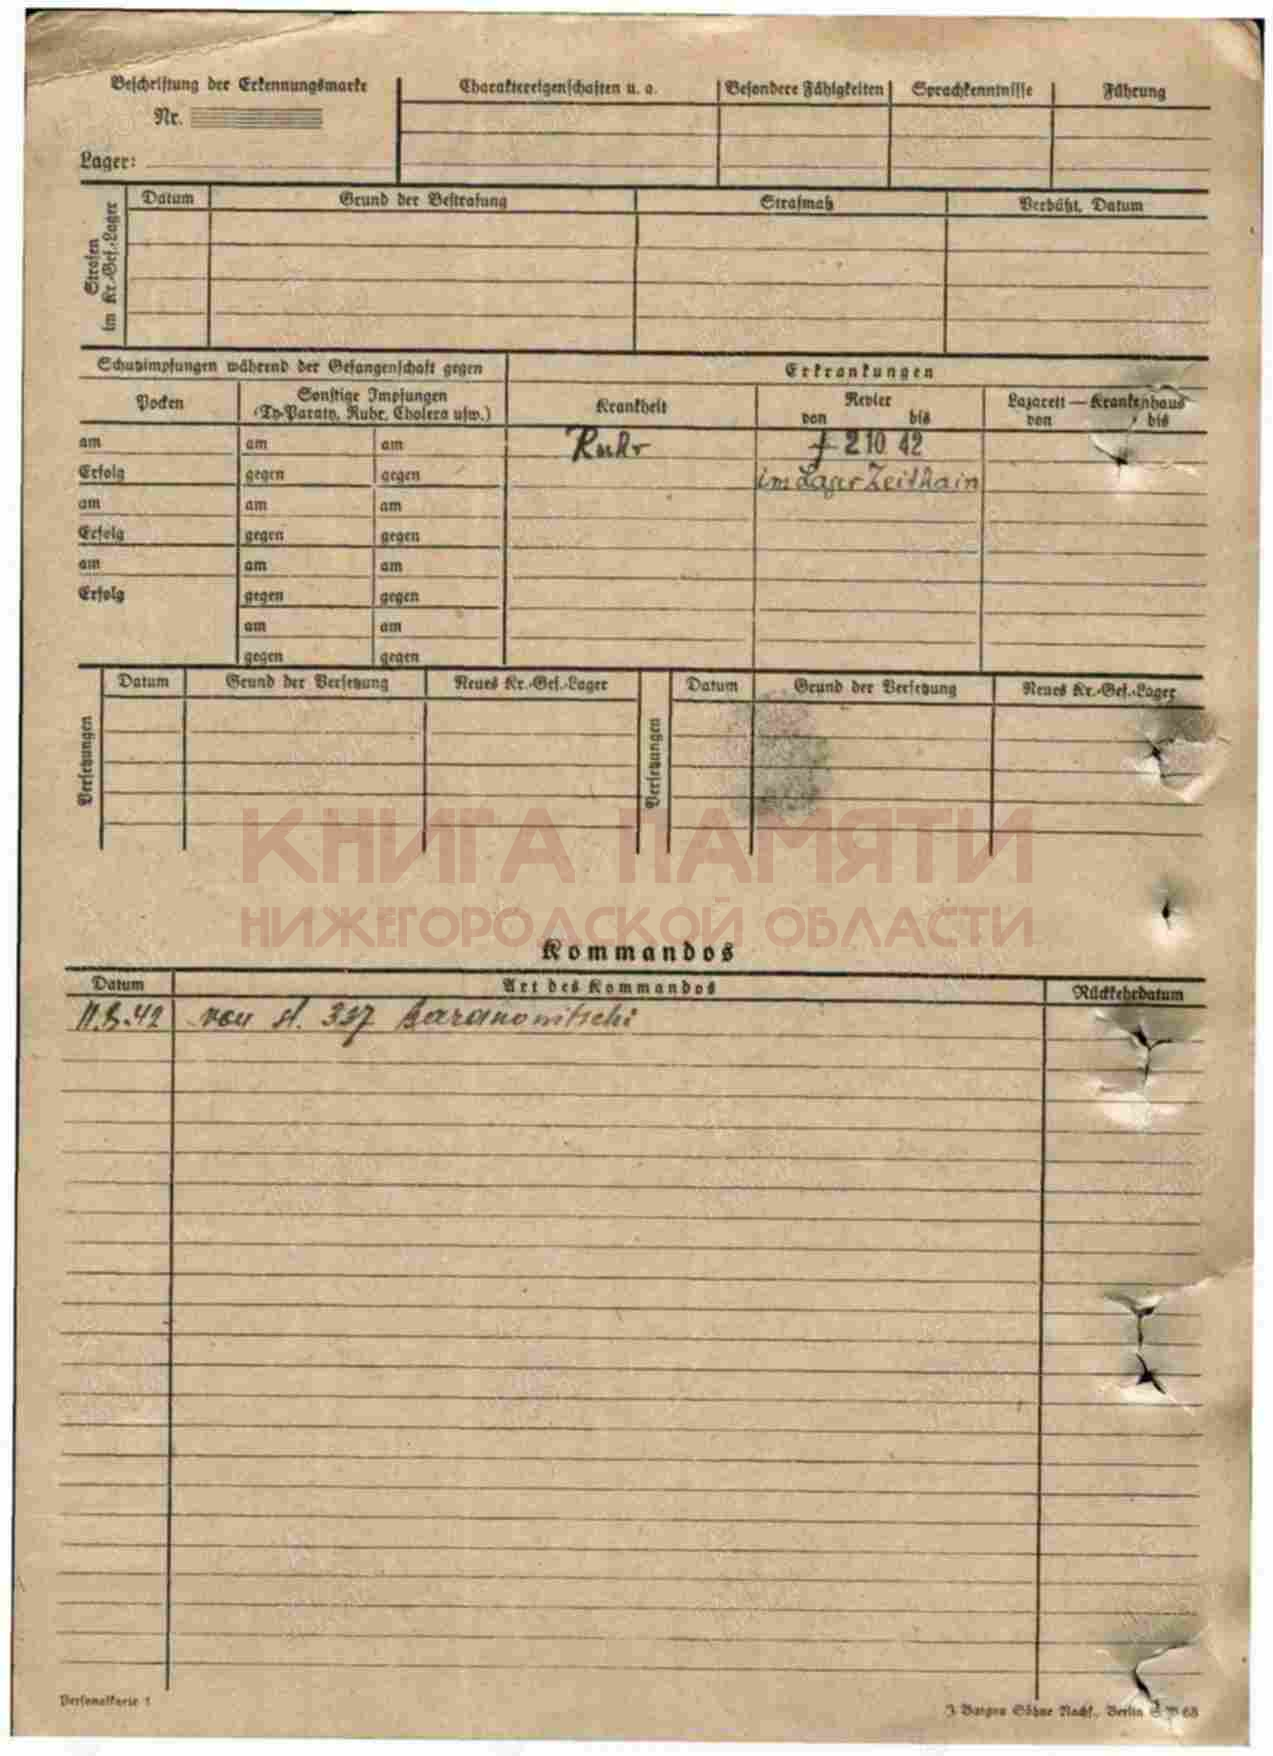 Beschriftung der Erkennungsmarke
Nr.
Lager:
Charaktereigenschaften u. a.
Besondere Fähigkeiten
Sprachkenntnisse
Führung
Strafen im Kr.-Gef.-Lager
Datum
Grund der Bestrafung
Strafmaß
Verbüßt, Datum
Schutzimpfungen während der Gefangenschaft gegen
Erkrankungen
Pocken
Sonstige Impfungen
(Ty-Paraty, Ruhr, Cholera usw.)
Krankheit
Revier
von bis
Lazarett — Krankenhaus
von bis
am am am
Ruhr
† 2 10 42
Erfolg gegen gegen
im Lager Zeithain
am am am
Erfolg gegen gegen
am am am
Erfolg gegen gegen
am am
gegen gegen
Versetzungen
Datum
Grund der Versetzung
Neues Kr.-Gef.-Lager
Versetzungen
Datum
Grund der Versetzung
Neues Kr.-Gef.-Lager
КНИГА ПАМЯТИ
НИЖЕГОРОДСКОЙ ОБЛАСТИ
Kommandos
Datum
Art des Kommandos
Rückkehrdatum
von st. 337 Baranowitschi
Personalkarte 1